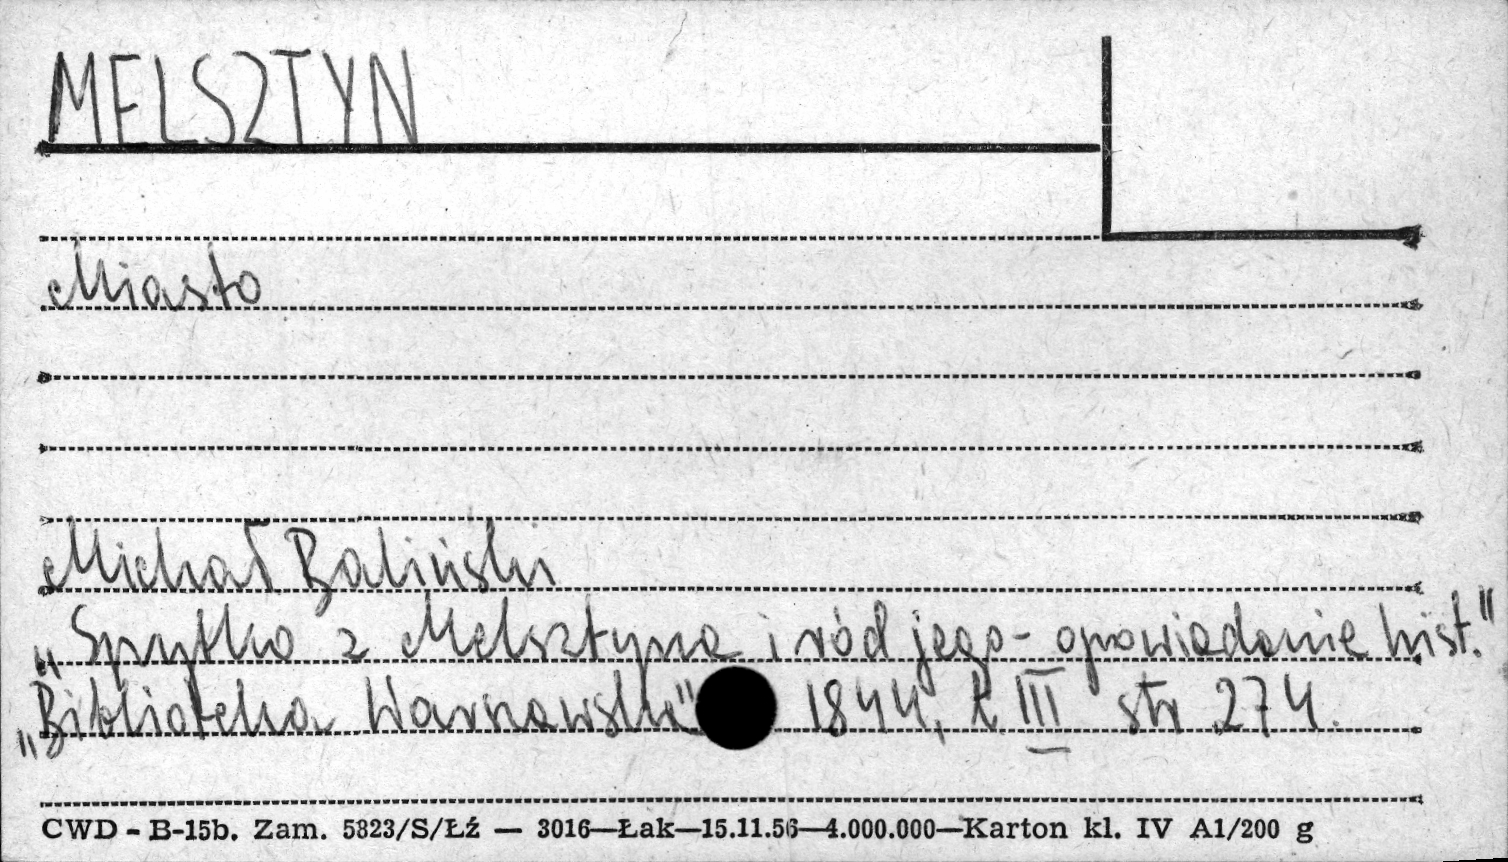 MELSZTYN
Miasto
Michał Baliński
„Spytko z Melsztyna i ród jego - opowiadanie hist."
„Biblioteka Warszawska" 1844, t. III str 274.
CWD - B-15b. Zam. 5823/S/Łź — 3016—Łak—15.11.56—4.000.000—Karton kl. IV A1/200 g